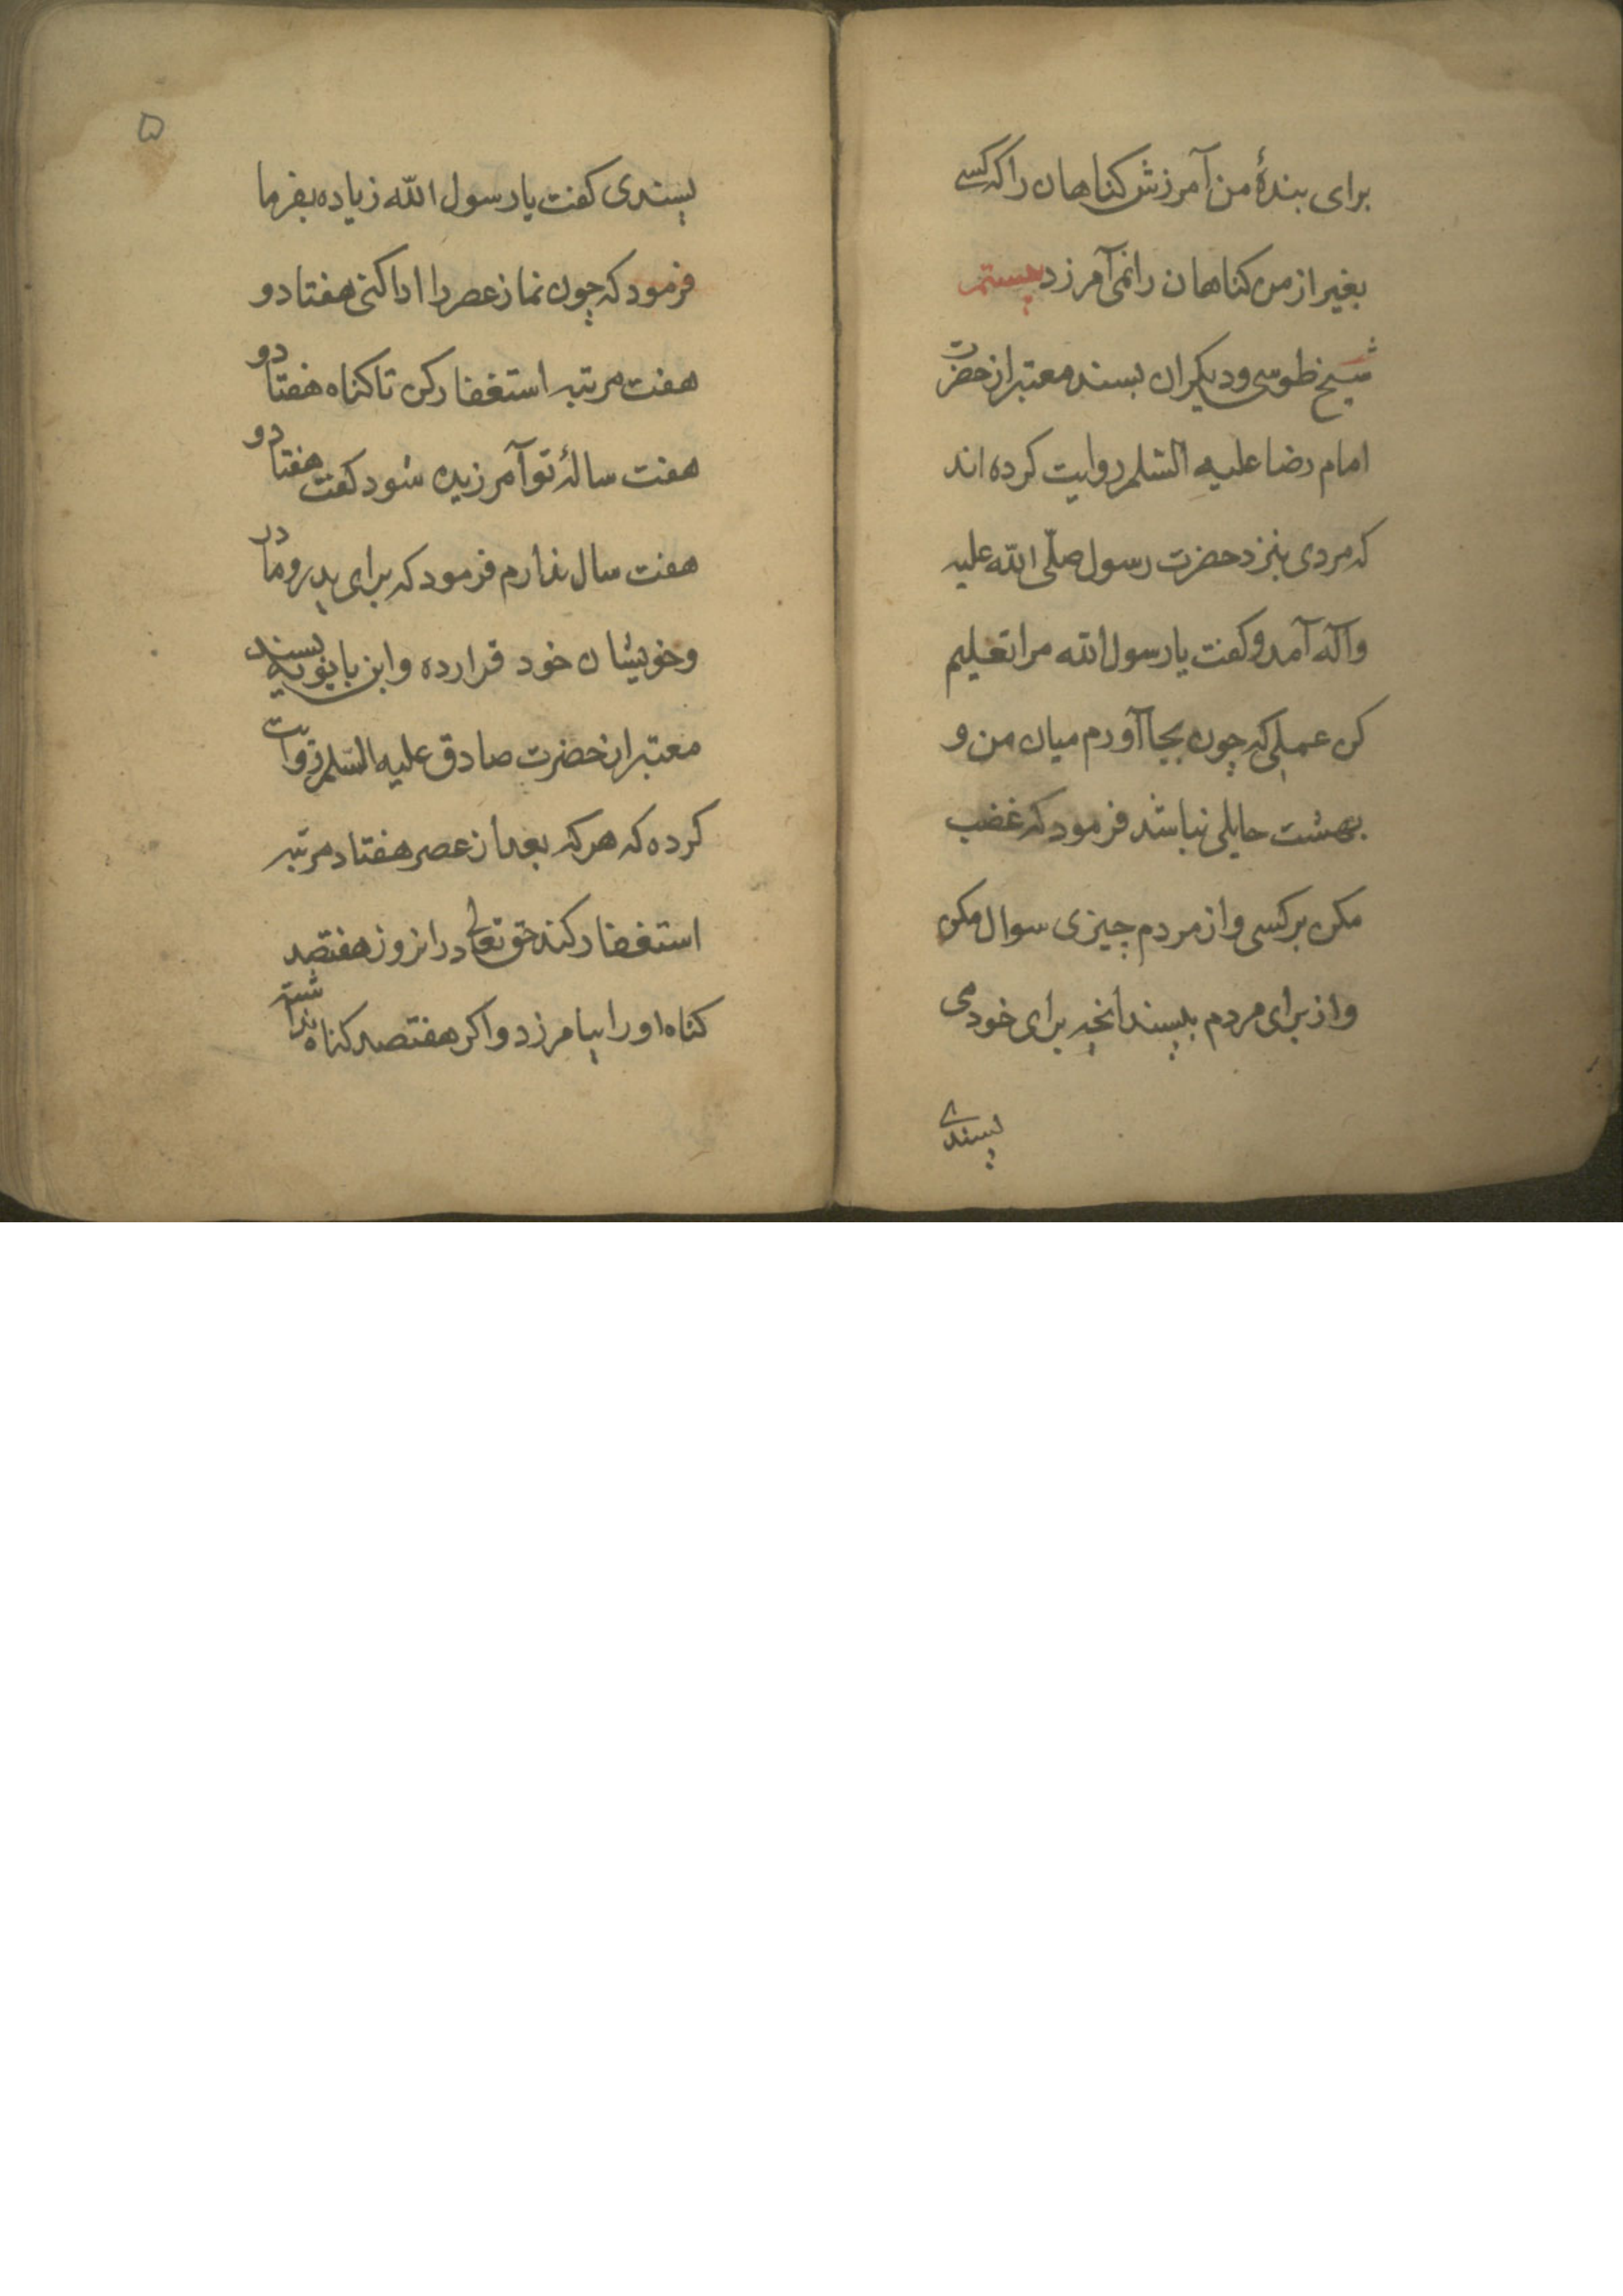 برای بندهٔ من آمرزش کناهان را که کسے
بغیر از من کناهان را نمی‌آمرزد بیستم
شیخ طوسی و دیکران بسند معتبر از حضرت
امام رضا علیه السّلم روایت کرده اند
که مردی بنزد حضرت رسول صلّی الله علیه
وآله آمد و کفت یا رسول الله مرا تعلیم
کن عملی که چون بجا آورم میان من و
بهشت حایلی نباشد فرمود که غضب
مکن بر کسی و از مردم چیزی سوال مکن
و از برای مردم بپسند آنچه برای خود می
پسندے
۵
پسندی کفت یا رسول الله زیاده بفرما
فرمود که چون نماز عصر را ادا کنی هفتاد و
هفت مرتبه استغفار کن تا کناه هفتاد و
هفت سالهٔ تو آمرزیده شود کفت هفتاد و
هفت سال ندارم فرمود که برای پدر و مادر
و خویشان خود قرار ده و ابن بابویه بسند
معتبر از حضرت صادق علیه السّلم روایت
کرده که هر که بعد از عصر هفتاد مرتبه
استغفار کند حق تعالی در انروز هفتصد
کناه او را بیامرزد و اکر هفتصد کناه نداشته